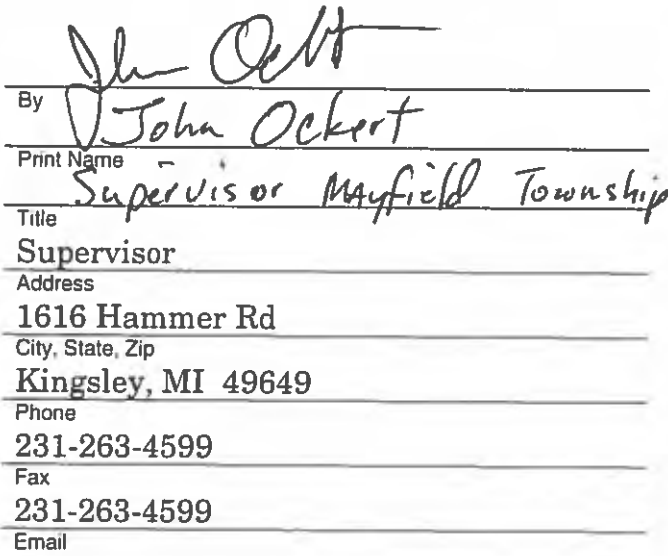 John Ockert
By
John Ockert
Print Name
Supervisor Mayfield Township
Title
Supervisor
Address
1616 Hammer Rd
City, State, Zip
Kingsley, MI 49649
Phone
231-263-4599
Fax
231-263-4599
Email